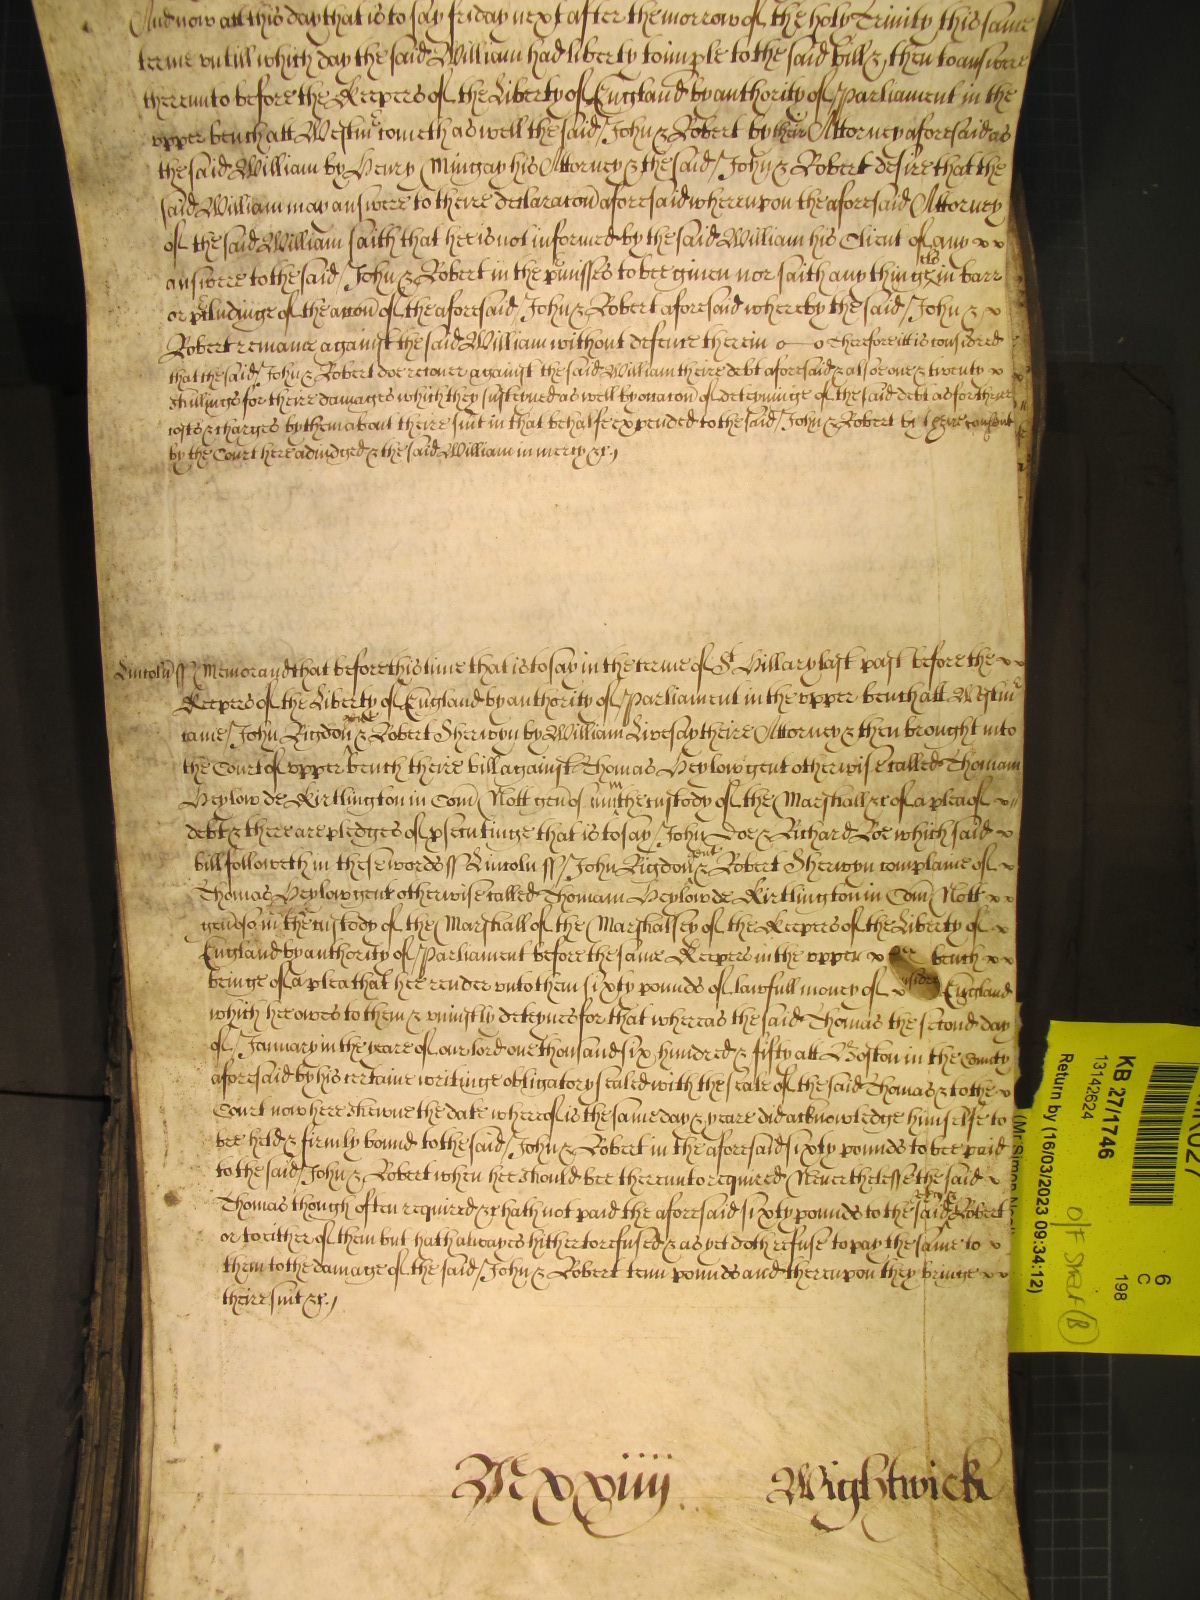 And now att this day that is to say friday next after the morrow of the holy Trinity this same
terme untill which day the said William had liberty to imple to the said bill &, then to answere
thereunto before the Keepers of the Liberty of England by authority of Parliament in the
upper bench att Westm cometh as well the said John & Robert by their Attorney aforesaid as
the said William by Henry Mingay his Attorney & the said John & Robert desire that the
said William may answere to theire declaracon aforesaid whereupon the aforesaid Attorney
of the said William saith that hee is not informed by the said William his Client of any
answere to the said John & Robert in the pmisses to bee given nor saith any thinge in barr
or pcludinge of the accon of the aforesaid John & Robert aforesaid whereby the said John &
Robert remaine against the said William without defence therein Therefore itt is considred
that the said John & Robert doe recover against the said William theire debt aforesaid & alsoe one & twenty
shillings for theire damages which they susteyned as well by occacon of deteyninge of the said debt as for theire
costs & charges by them about theire suit in that behalfe expended to the said John & Robert by theire consent
by the Court here adiudged & the said William in mercy &c.
Lincoln ss Memorand that before this time that is to say in the terme of St Hillary last past before the
Keepers of the Liberty of England by authority of Parliament in the upper bench att Westm
came John Rigdon & Robert Sherwyn by William Livesay theire Attorney & then brought into
the Court of upper bench theire bill against Thomas Heylow gent otherwise called Thomam
Heylow de Kirtlington in Com Nott gen of in the custody of the Marshall &c of a plea of
debt & there are pledges of psecutinge that is to say John Doe & Richard Roe which said
bill followeth in these words ss Lincoln ss John Rigdon & Robert Sherwyn complaine of
Thomas Heylow gent otherwise called Thomam Heylow de Kirtlington in Com Nott
gen in the custody of the Marshall of the Marshalsey of the Keepers of the Liberty of
England by authority of Parliament before the same Keepers in the upper bench
beinge of a plea that hee render unto them sixty pounds of lawfull money of England
which hee owes to them & uniustly deteynes for that whereas the said Thomas the second day
of January in the yeare of our lord one thousand six hundred & fifty att Boston in the County
aforesaid by his certaine writinge obligatory sealed with the seale of the said Thomas & to the
Court now here shewne the date whereof is the same day & yeare did acknowledge himselfe to
bee held & firmly bound to the said John & Robert in the aforesaid sixty pounds to bee paid
to the said John & Robert when hee should bee thereunto required Neverthelesse the said
Thomas though often required &c hath not paid the aforesaid sixty pounds to the said John & Robert
or to either of them but hath alwayes hitherto refused & as yet doth refuse to pay the same to
them to the damage of the said John & Robert tenn pounds and thereupon they bringe
theire suit &c.
Mxxiiij Wightwick
KB 27/1746
13142624
Return by (16/03/2023 09:34:12)
6
C
198